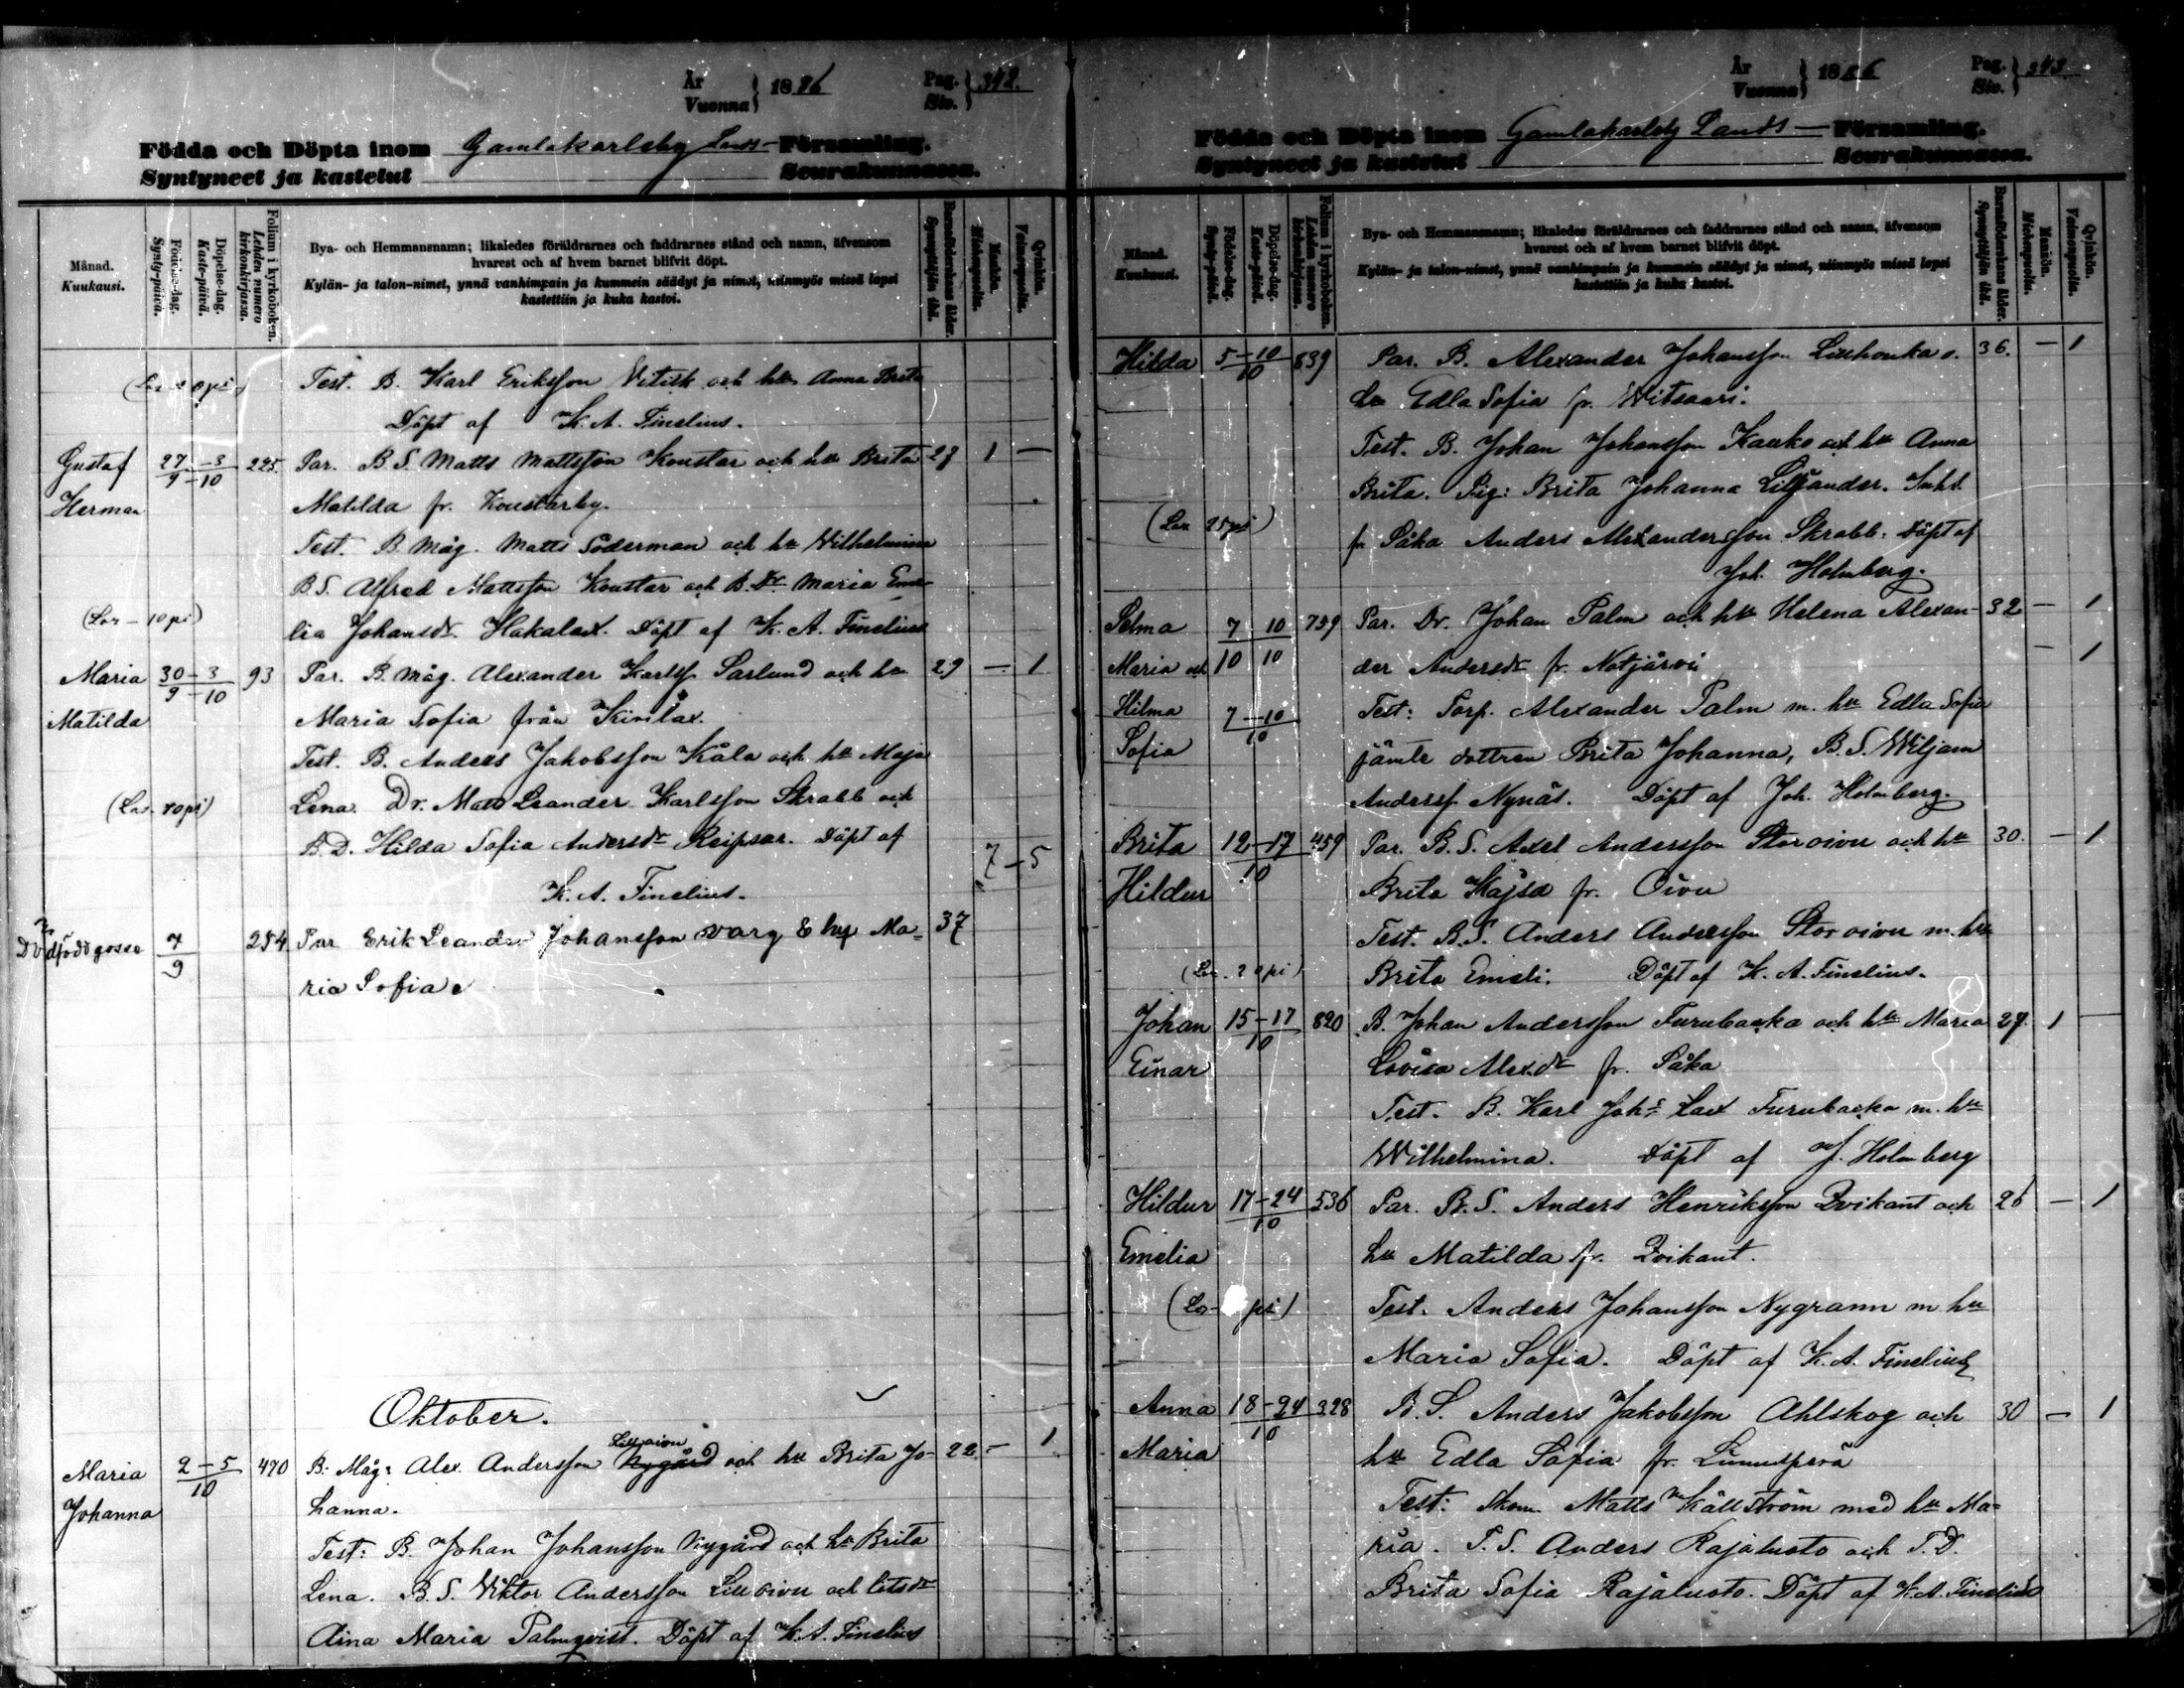 År
Vuonna } 1886 Pag.
Siv. } 342.
Födda och Döpta inom Gamlakarleby Lands-Församling.
Syntyneet ja kastetut Seurakunnassa.
Månad.
Kuukausi.
Födelse-dag.
Synty-päivä.
Döpelse-dag.
Kaste-päivä.
Folium i kyrkoboken.
Lehden numero kirkonkirjassa.
Bya- och Hemmansnamn; likaledes föräldrarnes och faddrarnes stånd och namn, äfvensom
hvarest och af hvem barnet blifvit döpt.
Kylän- ja talon-nimet, ynnä vanhimpain ja kummein säädyt ja nimet, niinmyös missä lapsi
kastettiin ja kuka kastoi.
Barnföderskans ålder.
Synnyttäjän ikä.
Mankön.
Miehenpuolia.
Qvinkön.
Vaimonpuolia.
Test. B. Karl Eriksson Vitick och hu Anna Brita
Döpt af K. A. Finelius.
Gustaf 27-3/9-10 225. Par. B. S. Matts Mattsson Koustar och hu Brita 27 1 —
Herman Matilda fr. Koustarby.
Test. B. Måg. Matts Söderman och hu Wilhelmina
B. S. Alfred Mattsson Koustar och B. Dr. Maria Eme-
(Lor - 10 pi) lia Johansdr. Hakalax. Döpt af K. A. Finelius
Maria 30-3/9-10 93 Par. B. måg. Alexander Karlss. Sarlund och hu 29 — 1
Matilda Maria Sofia från Kivilax.
Test. B. Anders Jakobsson Kåla och hu Maja
Lena. Dr. Matts Leander Karlsson Skrabb och
B. D. Hilda Sofia Andersdr Reipsar. Döpt af
7-5
K. A. Finelius.
Dödfödd gosse 7/9 254 Par Erik Leander Johansson Varg & hu Ma- 37
ria Sofia
Oktober.
Maria 2-5/10 470 B. Måg: Alex. Andersson Lilloivu Nygård och hu Brita Jo- 22 — 1
Johanna hanna.
Test: B. Johan Johansson Nygård och hu Brita
Lena. B. S. Viktor Andersson Lilloivu och
Aina Maria Palmqvist. Döpt af K. A. Finelius
År
Vuonna } 1886 Pag.
Siv. } 343
Födda och Döpta inom Gamlakarleby Lands-Församling.
Syntyneet ja kastetut Seurakunnassa.
Månad.
Kuukausi.
Födelse-dag.
Synty-päivä.
Döpelse-dag.
Kaste-päivä.
Folium i kyrkoboken.
Lehden numero kirkonkirjassa.
Bya- och Hemmansnamn; likaledes föräldrarnes och faddrarnes stånd och namn, äfvensom
hvarest och af hvem barnet blifvit döpt.
Kylän- ja talon-nimet, ynnä vanhimpain ja kummein säädyt ja nimet, niinmyös missä lapsi
kastettiin ja kuka kastoi.
Barnföderskans ålder.
Synnyttäjän ikä.
Mankön.
Miehenpuolia.
Qvinkön.
Vaimonpuolia.
Hilda 5-10/10 839 Par. B. Alexander Johansson o. 36. — 1
hu Edla Sofia fr. Witsaari.
Test. B. Johan Johansson Kauko och hu Anna
Brita. Pig: Brita Johanna Liljander. Inhs.
(Lor 25 pi) fr Såka Anders Alexandersson Skrabb. Döpt af
Joh. Holmberg.
Selma 7 10 759 Par. Dr. Johan Palm och hu Helena Alexan- 32 — 1
Maria och 10 10 der Andersdr fr. Notjärvi — 1
Hilma 7-10/10 Test: Torp. Alexander Palm m. hu Edla Sofia
Sofia jämte dottren Brita Johanna, B. S. Wiljam
Anderss Nynäs. Döpt af Joh. Holmberg.
Brita 12-17/10 459 Par. B. S. Axel Andersson Storoivu och hu 30. — 1
Hildur Brita Kajsa fr. Oivu
Test. B. S. Anders Andersson Storoivu m. hu
(Lor. 20 pi) Brita Emeli. Döpt af K. A. Finelius.
Johan 15-17/10 820 B. Johan Andersson Furubacka och hu Maria 27. 1 —
Einar Lovisa Alex.dr fr. Såka
Test. B. Karl Johs Lax Furubacka m. hu
Wilhelmina. Döpt af J. Holmberg
Hildur 17-24/10 536 Par. B. S. Anders Henriksson Qvikant och 26 — 1
Emelia hu Matilda fr. Qvikant.
(Lor pi) Test. Anders Johansson Nygrann m hu
Maria Sofia. Döpt af K. A. Finelius
Anna 18-24/10 328 B. S. Anders Jakobsson Ahlskog och 30 — 1
Maria hu Edla Sofia fr. Linnusperä
Test: Skom. Matts Källström med hu Ma-
ria. T. S. Anders Rajaluoto och T. D.
Brita Sofia Rajaluoto. Döpt af K. A. Finelius